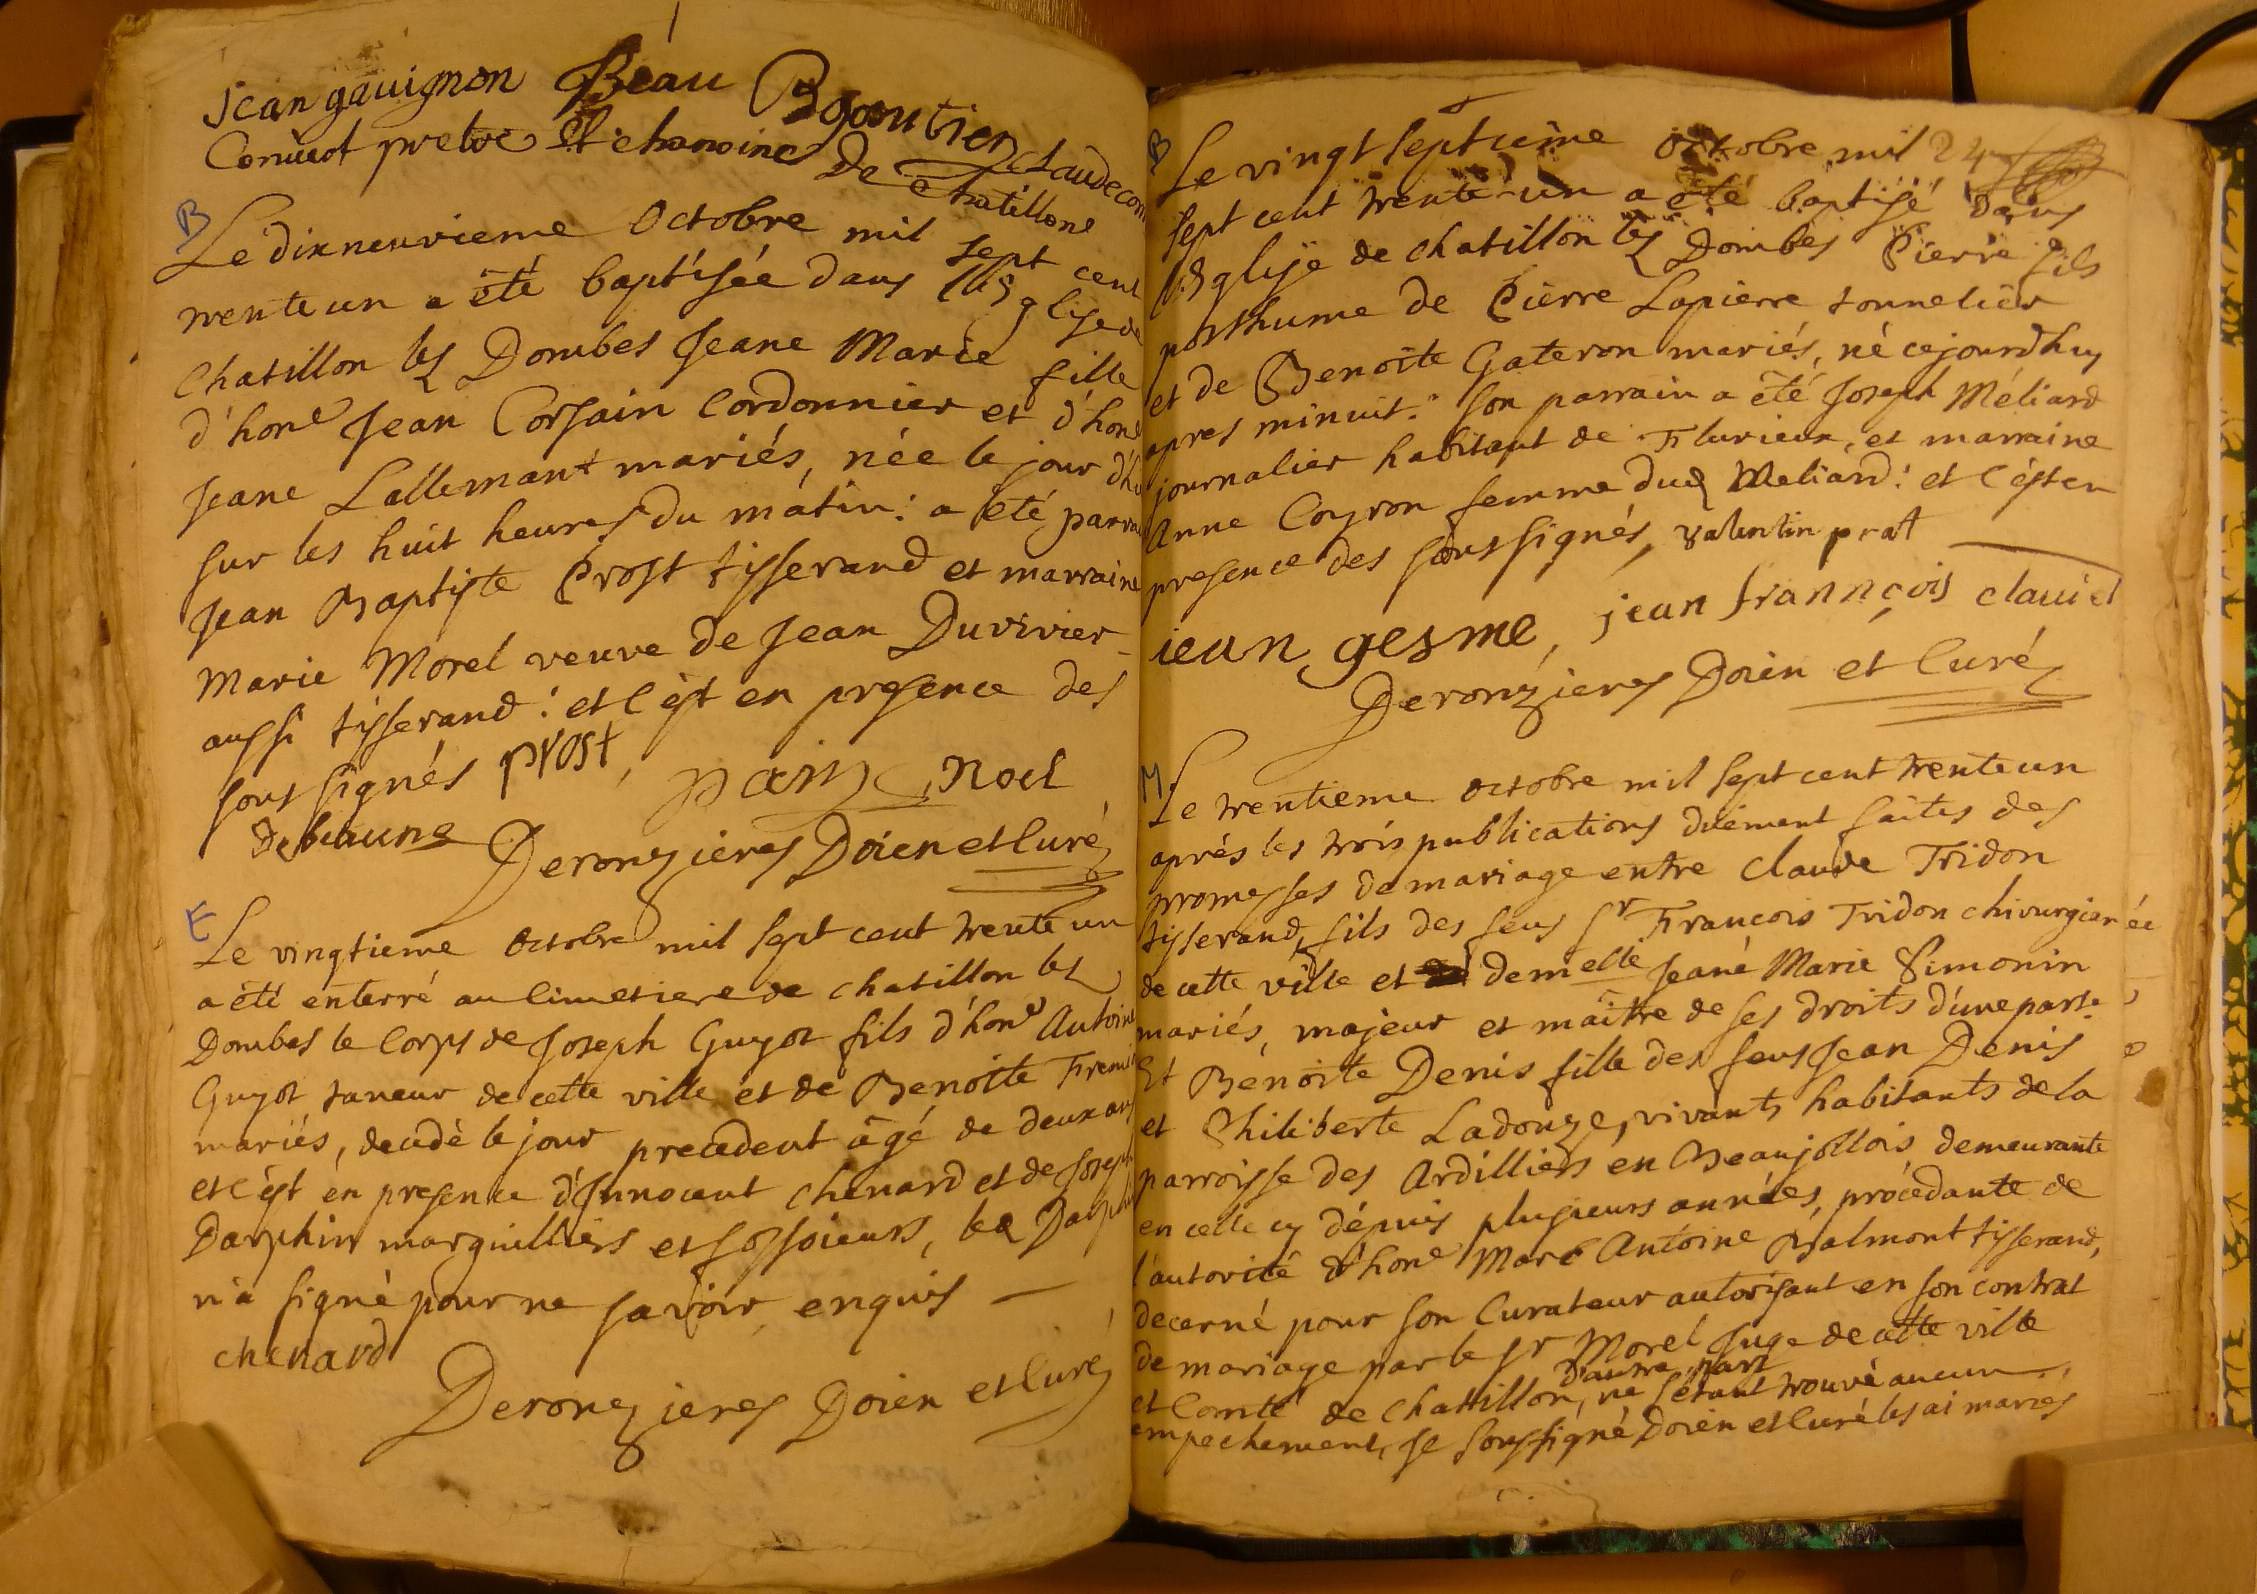 jean gauignon Beau B gontier Claude com
Comicot pretre Et chanoine De Chatillone
B
Le dixneuvieme Octobre mil sept cent
trente un a été baptisée dans l'Eglise de
Chatillon les Dombes Jeane Marie fille
d'hone Jean Corsain Cordonnier et d'hone
Jeane Lallemant mariés, née le jour d'hu
sur les huit heures du matin: a été parra
Jean Baptiste Prost tisserand et marraine
Marie Morel veuve de Jean Duvivier
aussi tisserand: et c'est en presence des
sous signés prost, pain, Noel
Debeaune Deronzieres Doien et Curé
E
Le vingtieme Octobre mil sept cent trente un
a été enterré au Cimetiere de chatillon les
Dombes le Corps de Joseph Guyot fils d'hone Antoine
Guyot taneur de cette ville et de Benoite Fremi
mariés, decedé le jour precedent âgé de deux ans
et c'est en presence d'Innocent Chenard et de Joseph
Dauphin marguilliers et fossoieurs, led Dauphin
n'a signé pour ne savoir enquis —
chenard
Deronzieres Doien et Curé
24
B
Le vingt septieme Octobre mil
sept cent trente-un a été baptisé dans
l'Eglise de chatillon les Dombes Pierre fils
posthume de Pierre Lapierre tonnelier
et de Benoite Gateron mariés, né cejourdhuy
apres minuit: son parrain a été Joseph Méliard
journalier habitant de Flurieux, et marraine
Anne Coyron femme dud Meliard: et c'est en
presence des soussignés, valentin prat
iean gesme, jean françois clauiel
Deronzieres Doien et Curé
M
Le trentieme octobre mil sept cent trente un
aprés les trois publications düement faites des
promesses de mariage entre Claude Tridon
tisserand, fils des feus sr François Tridon chirurgien
de cette ville et demelle Jeane Marie Simonin
mariés, majeur et maître de ses droits d'une part.
Et Benoite Denis fille des feus Jean Denis
et Philiberte Ladouze, vivants habitants de la
parroisse des Ardilliers en Beaujollois demeurante
en celle cy dépuis plusieurs années, procédante de
l'autorité d'hone Marc Antoine Balmont tisserand,
decerné pour son Curateur autorisant en son contrat
de mariage par le sr Morel Juge de cette ville
d'autre part
et Comté de Chatillon, ne s'etant trouvé aucun
empechement, Je soussigné Doien et Curé les ai mariés